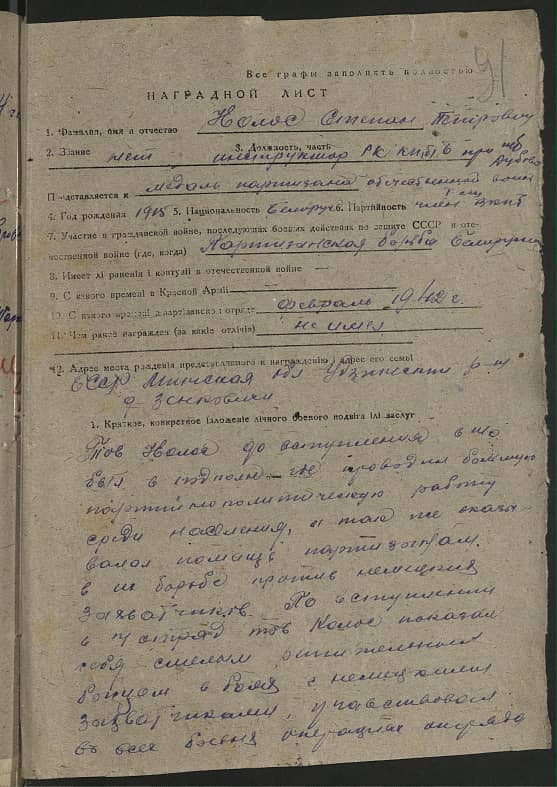 91
Все графы заполнять полностью
НАГРАДНОЙ ЛИСТ
1. Фамилия, имя и отчество Колос Степан Петрович
2. Звание нет 3. Должность, часть инструктор РК КП(б)Б при
Представляется к медаль партизана отечественной войны
4. Год рождения 1915 5. Национальность белорус 6. Партийность член ВКПб
7. Участие в гражданской войне, последующих боевых действиях по защите СССР и оте-
чественной войне (где, когда) Партизанская борьба Белоруссия
8. Имеет ли ранения и контузии в отечественной войне —
9. С какого времени в Красной Армии —
10. С какого времени в партизанском отряде февраль 1942 г.
11. Чем ранее награжден (за какие отличия) не имел
12. Адрес места рождения представленного к награждению и адрес его семьи
БССР Минская обл Узденский р-н
д Зеньковичи
1. Краткое, конкретное изложение личного боевого подвига или заслуг
Тов Колос до вступления в по
был в подполье где проводил большую
партийно политическую работу
среди населения, а так же оказы-
вал помощь партизанам.
в их борьбе против немецких
захватчиков. По вступлении
в п/отряд тов Колос показал
себя смелым решительным
бойцом в боях с немецкими
захватчиками, участвовал
во всех боевых операциях отряда